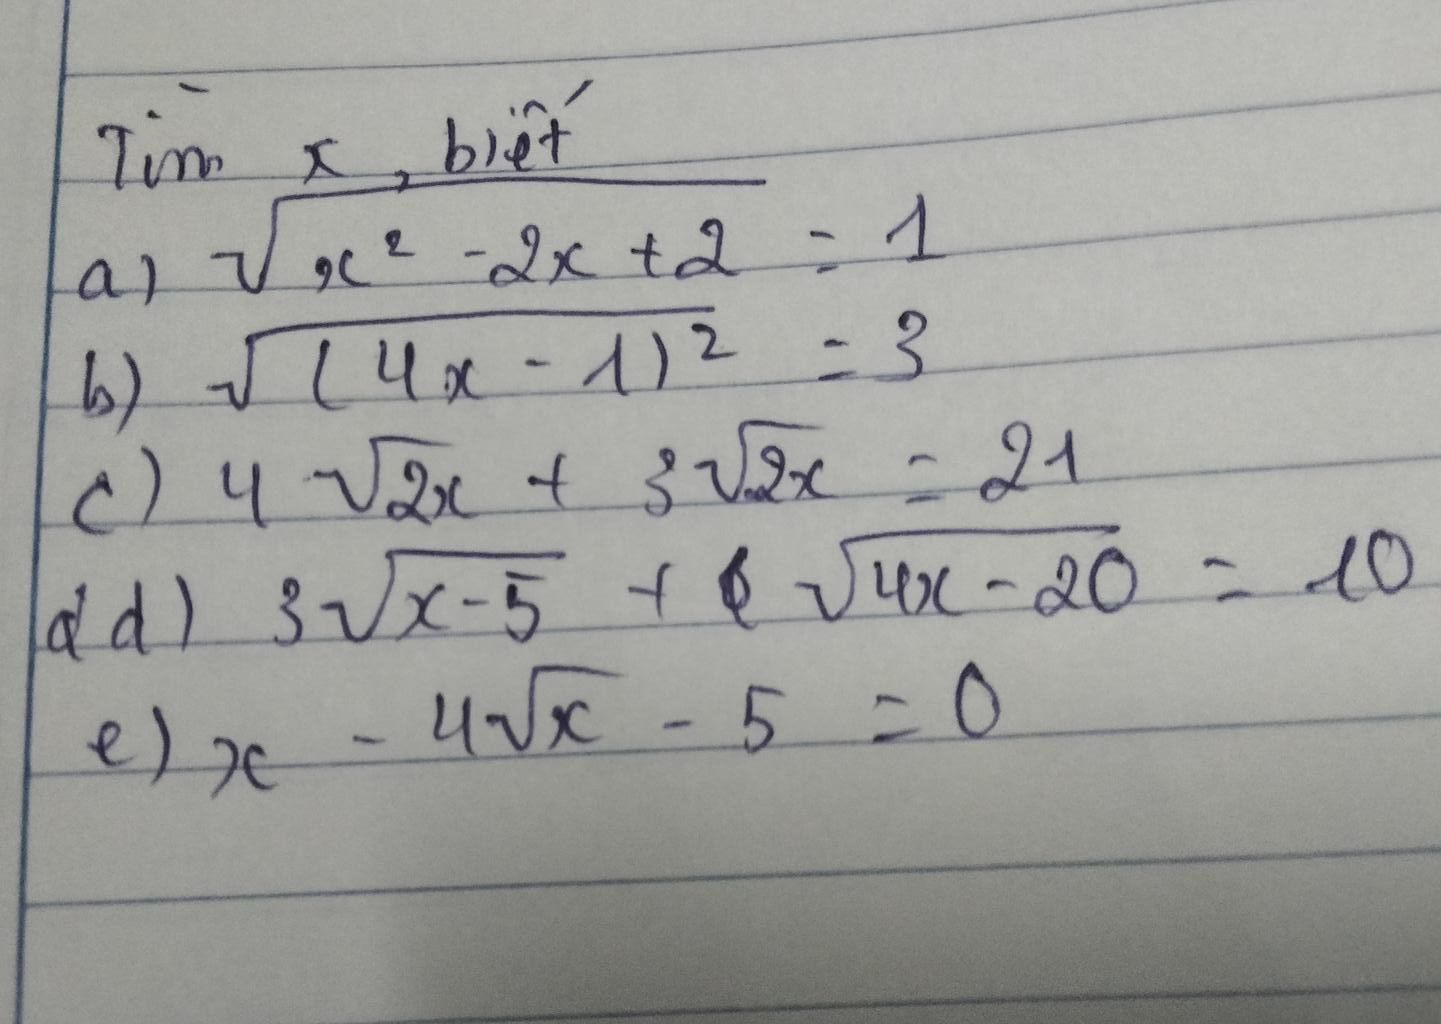 Tìm x, biết
a) √(x² - 2x + 2) = 1
b) √((4x - 1)²) = 3
c) 4√2x + 3√2x = 21
d d) 3√(x-5) + √(4x - 20) = 10
e) x - 4√x - 5 = 0